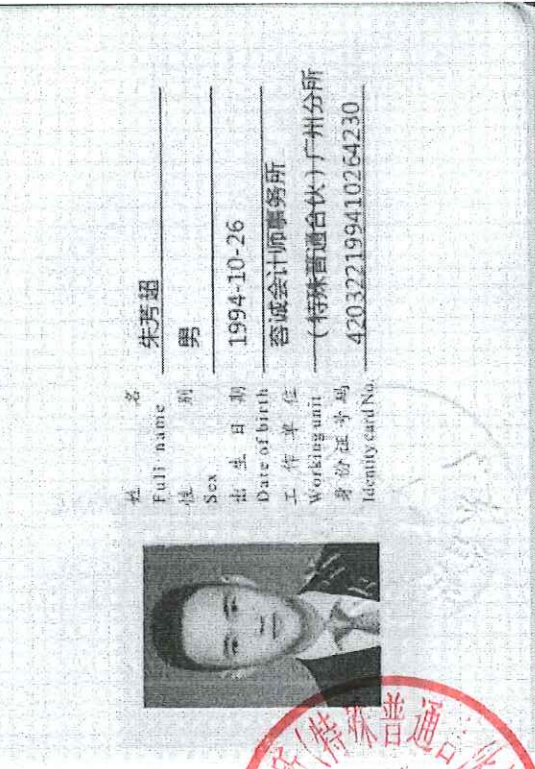 姓 名 朱芳超
Full name
性 别 男
Sex
出 生 日 期 1994-10-26
Date of birth
工 作 单 位 容诚会计师事务所
Working unit （特殊普通合伙）广州分所
身 份 证 号 码 420322199410264230
Identity card No.
（特殊普通合伙）